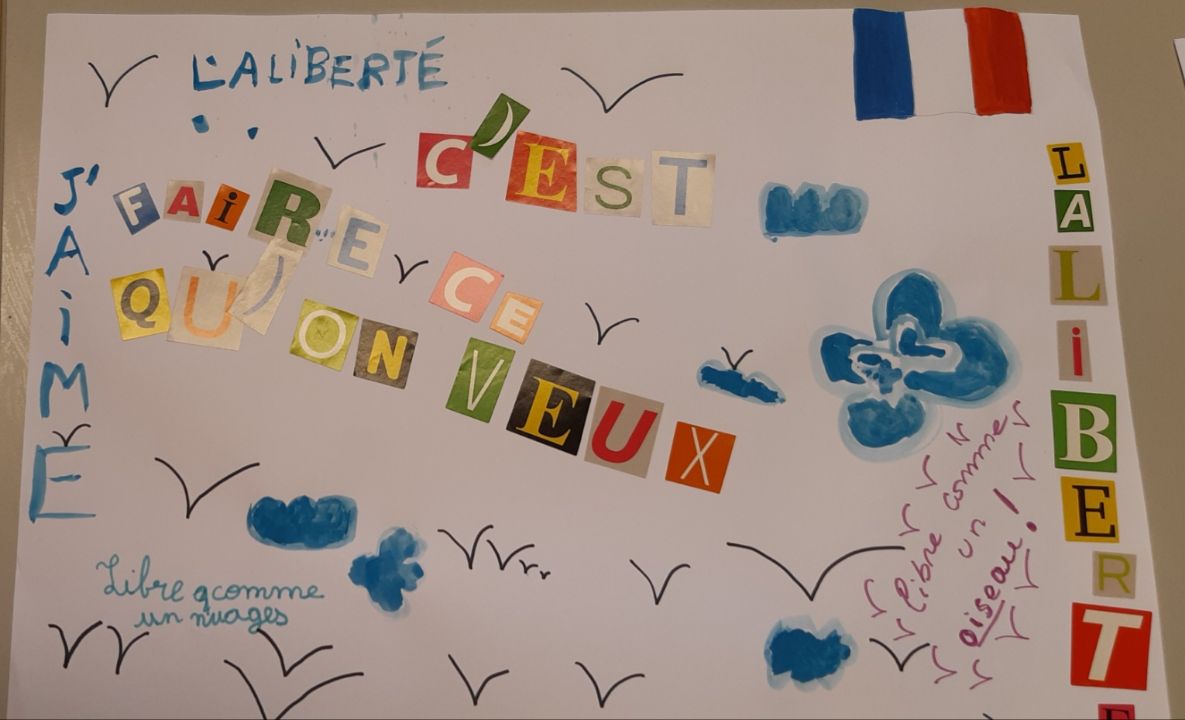 L'ALiBERTÉ
C'EST
FAiRE CE
QU'ON VEUX
J'AiME
LA LiBERTE
Libre comme
un oiseau!
Libre qcomme
un nuages